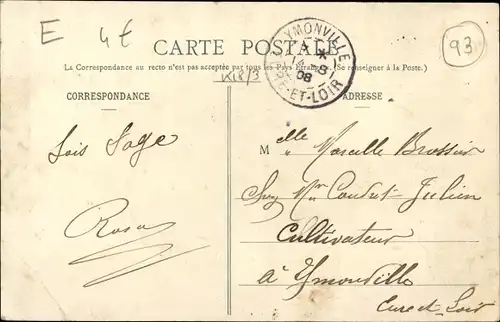 E 4t
93
CARTE POSTALE
YMONVILLE
4 - 8
08
EURE-ET-LOIR
La Correspondance au recto n'est pas acceptée par tous les Pays Étrangers. (Se renseigner à la Poste.)
CORRESPONDANCE
ADRESSE
Sois Sage
Rosa
Melle Marcelle Brossier
chez Mr Julien
Cultivateur
à Ymonville
Eure et Loir